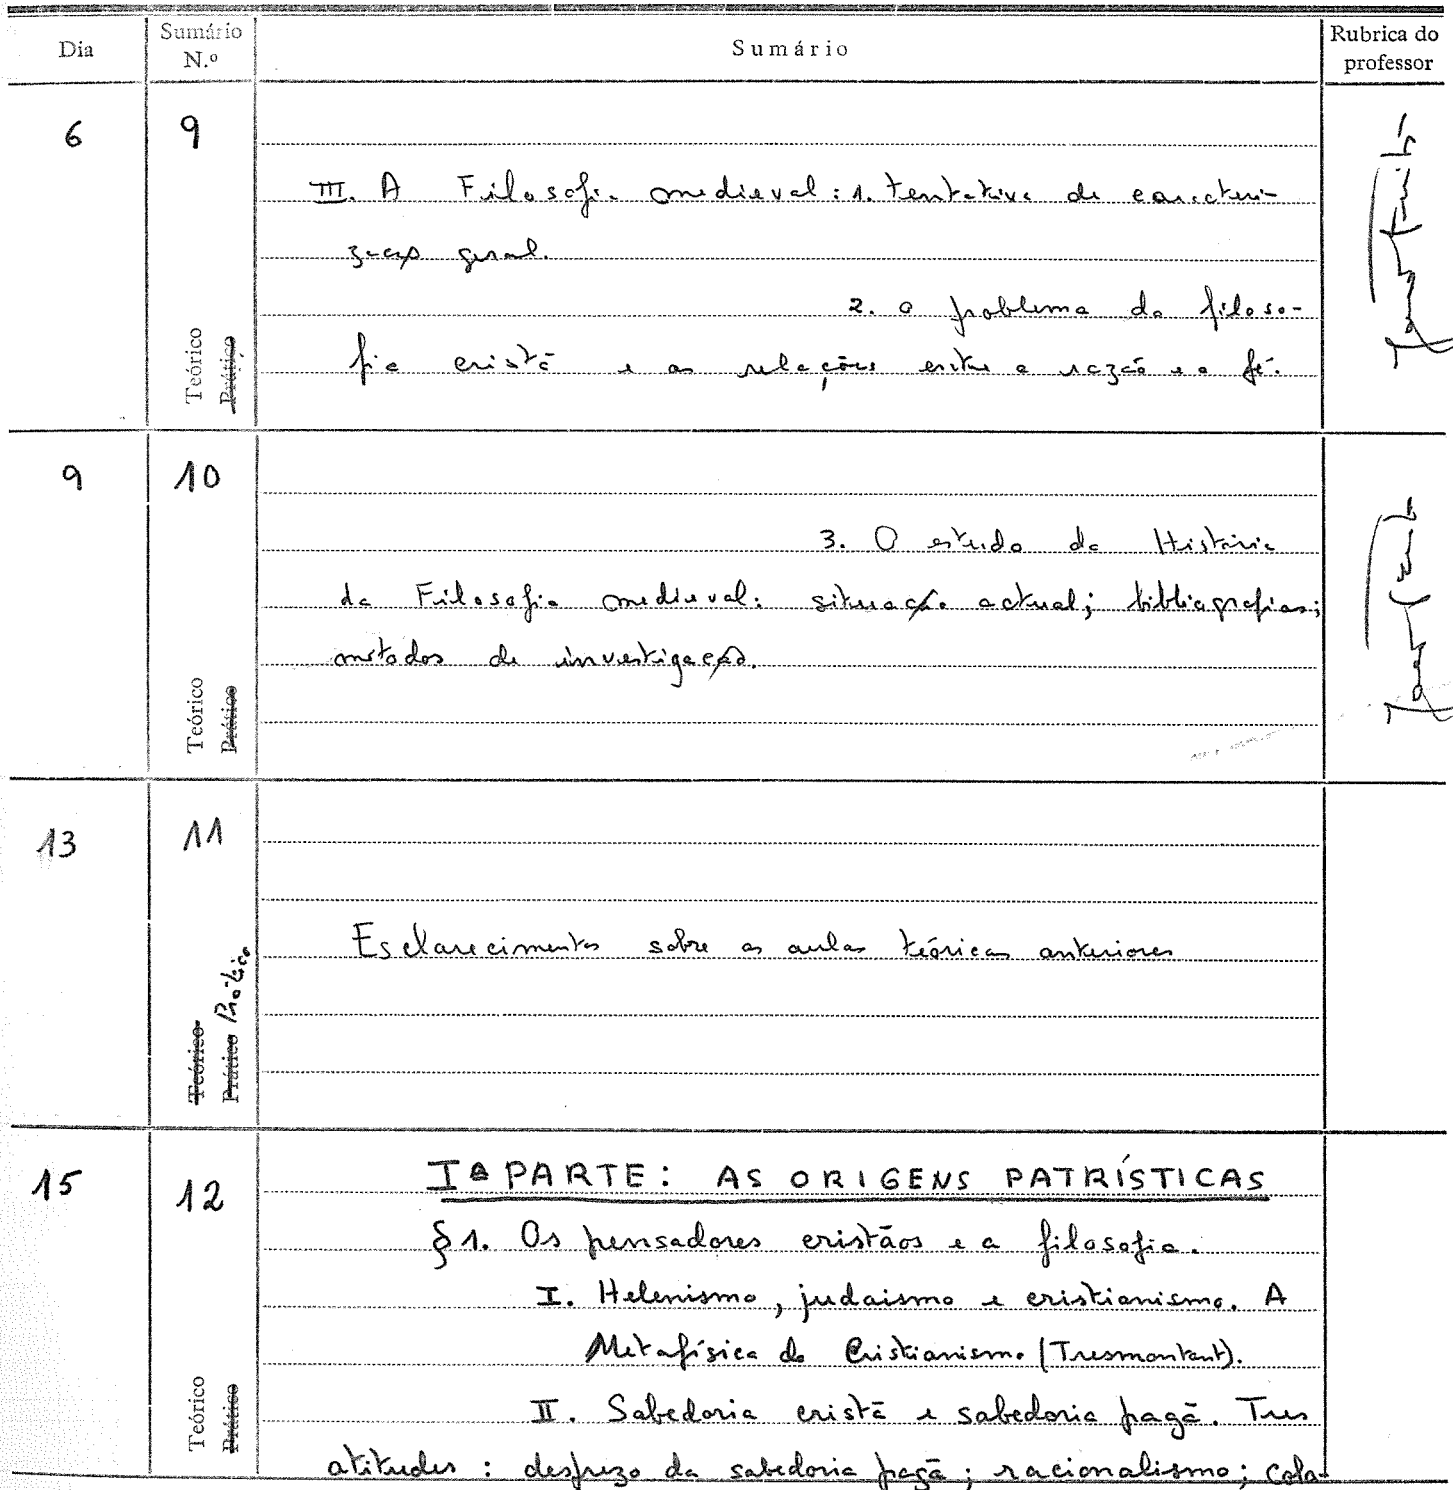 Dia Sumário N.º Sumário Rubrica do professor
6 9
III. A Filosofia medieval: 1. tentativa de caracteri-
zação geral.
2. o problema da filoso-
fia cristã e as relações entre a razão e a fé.
Teórico
Prático
9 10
3. O estudo da História
da Filosofia medieval: situação actual; bibliografias;
métodos de investigação.
Teórico
Prático
13 11
Esclarecimentos sobre as aulas teóricas anteriores
Teórico
Prático Prático
15 12
Iª PARTE: AS ORIGENS PATRÍSTICAS
§ 1. Os pensadores cristãos e a filosofia.
I. Helenismo, judaismo e cristianismo. A
Metafísica do Cristianismo (Tresmontant).
II. Sabedoria cristã e sabedoria pagã. Tres
atitudes: desprezo da sabedoria pagã; racionalismo; cola-
Teórico
Prático